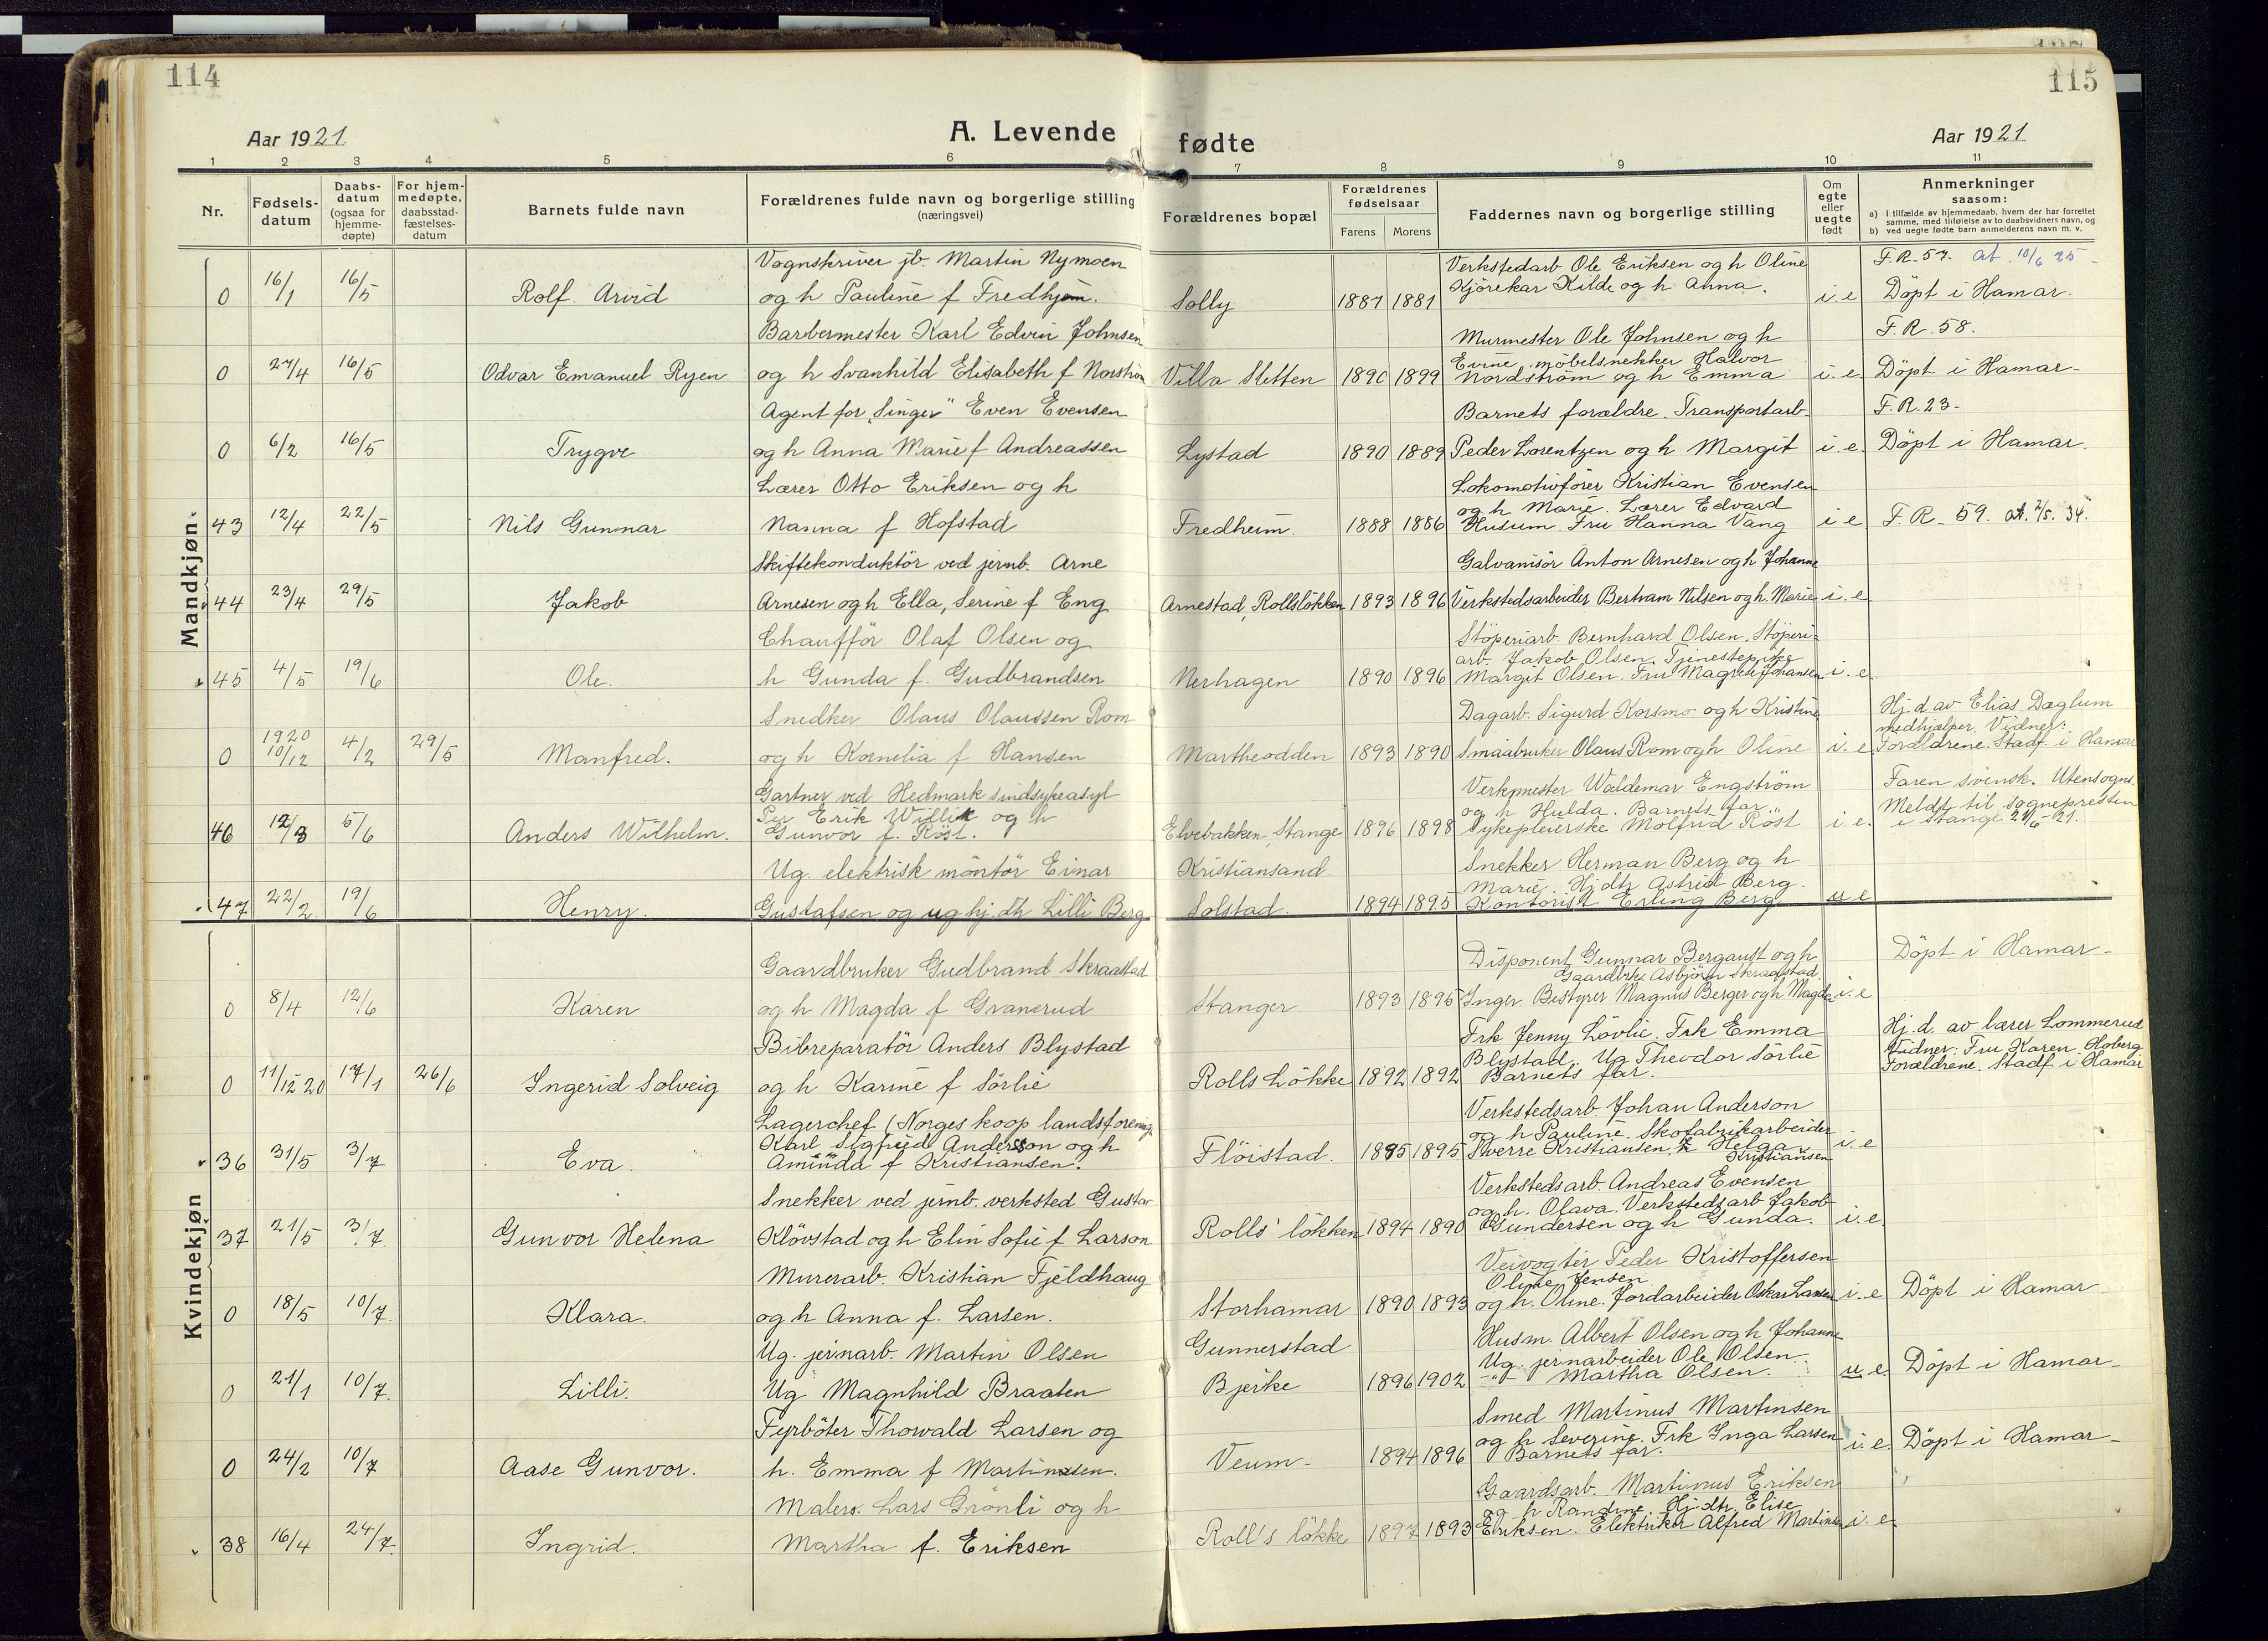 114
115
Aar 1921
A. Levende
fødte
Aar 1921
1 2 3 4 5 6 7 8 9 10 11
Nr.
Fødsels-
datum
Daabs-
datum
(ogsaa for
hjemme-
døpte)
For hjem-
medøpte,
daabsstad-
fæstelses-
datum
Barnets fulde navn
Forældrenes fulde navn og borgerlige stilling
(næringsvei)
Forældrenes bopæl
Forældrenes
fødselsaar
Farens Morens
Faddernes navn og borgerlige stilling
Om
egte
eller
uegte
født
Anmerkninger
saasom:
a) i tilfælde av hjemmedaab, hvem der har forrettet
samme, med tilføielse av to daabsvidners navn, og
b) ved uegte fødte barn anmelderens navn m. v.
Mandkjøn.
0 16/1 16/5
Rolf. Arvid
Vognskriver jb. Martin Nymoen
og h Pauline f Fredhjem.
Solly
1881 1881
Verkstedarb Ole Eriksen og h Oline
Kjörekar Kilde og h Anna.
i.e
F.R. 57. at. 10/6 25
Döpt i Hamar.
0 27/4 16/5
Odvar Emanuel Ryen
Barbermester Karl Edvin Johnsen
og h Svanhild Elisabeth f Norström
Villa Sletten
1890 1899
Murmester Ole Johnsen og h
Evine, möbelsnekker Halvor
Nordström og h Emma
i.e
F.R. 58.
Döpt i Hamar-
0 6/2 16/5
Trygve
Agent for "Singer" Even Evensen
og h Anna Marie f Andreassen
Lystad
1890 1889
Barnets forældre. Transportarb-
Peder Lorentzen og h Margit
i.e.
F.R. 23-
Döpt i Hamar.
43 12/4 22/5
Nils Gunnar
Lærer Otto Eriksen og h
Nanna f Hofstad
Fredheim.
1888 1886
Lokomotivförer Kristian Evensen
og h Marie. Lærer Edvard
Husum. Fru Hanna Vang
i e
F.R. 59. at. 2/5. 34.
44 23/4 29/5
Jakob
Skiftekonduktör ved jernb. Arne
Arnesen og h Ella, Serine f Eng
Arnestad, Rollslökken
1893 1896
Galvanisör Anton Arnesen og h Johanne
Verkstedsarbeider Bertram Nilsen og h. Marie
i.e
45 4/5 19/6
Ole.
Chauffför Olaf Olsen og
h Gunda f. Gudbrandsen
Nerhagen
1890 1896
Stöperiarb. Bernhard Olsen. Stöperi-
arb. Jakob Olsen. Tjenestepike
Margit Olsen. Fru Magrete Johansen
i.e
0 1920 10/12 4/2 29/5
Manfred.
Snedker Olaus Olaussen Rom
og h Kornelia f Hansen
Martheodden
1893 1890
Dagarb. Sigurd Korsmo og h Kristine
Smaabruker Olaus Rom og h Oline
i.e
Hj.d av Elias Dæglum
medhjælper. Vidner:
Foreldrene. Stadf. i Hamar
46 12/3 5/6
Anders Wilhelm.
Gartner ved Hedmark sindsykeasyl
Per Erik Willik og h
Gunvor f. Röst.
Elvebakken, Stange
1896 1898
Verkmester Waldemar Engström
og h Hulda. Barnets far.
Sykepleierske Molfrid Röst
i.e.
Faren svensk. Utensogns.
Meldt til sognepresten
i Stange 21/6-21.
47 22/2 19/6
Henry.
Ug. elektrisk möntör Einar
Gustafsen og ug hj.dtr Lilli Berg
Kristiansand.
Solstad.
1894 1895
Snekker Herman Berg og h
Marie. Hj.dtr Astrid Berg.
Kontorist Erling Berg
u e
Kvindekjøn
0 8/4 12/6
Karen
Gaardbruker Gudbrand Skraastad
og h Magda f Granerud
Stanger
1893 1896
Disponent Gunnar Bergaust og h
Gaardbrk. Asbjörn Skraastad.
Inger. Bestyrer Magnus Berger og h Magda
i.e
Döpt i Hamar-
0 11/12 20 17/1 26/6
Ingerid Solveig
Bilreparatör Anders Blystad
og h Karine f Sörlie
Rolls Lökke
1892 1892
Frk Jenny Lövlie. Frk Emma
Blystad. Ug Theodor Sörlie
Barnets far.
Hj.d. av lærer Lommerud
Vidner: Fru Karen Hoberg
Forældrene. Stadf. i Hamar
36 31/5 3/7
Eva.
Lagerchef (Norges koop landsforening
Karl Sigfrid Andersson og h
Aminda f Kristiansen.
Flöistad.
1895 1895
Verkstedsarb. Johan Anderson
og h Pauline. Skofabrikarbeider
Sverre Kristiansen, Helga
Kristiansen
i.e
37 21/5 3/7.
Gunvor Helena
Snekker ved jernb. verksted Gustav
Klövstad og h Elin Sofie f Larson
Rolls' lökken
1894 1890
Verkstedsarb. Andreas Evensen
og h. Olava. Verkstedsarb Jakob
Gundersen og h Gunda.
i.e
0 18/5 10/7
Klara.
Murerarb. Kristian Fjeldhaug
og h Anna f. Larsen.
Storhamar
1890 1893
Veivogter Peder Kristoffersen
Oline Jensen
og h. Oline. Jordarbeider Oskar Larsen
i.e
Döpt i Hamar
0 21/1 10/7
Lilli.
Ug. jernarb. Martin Olsen
Ug Magnhild Braaten
Gunnerstad
Bjerke
1896 1902
Husm. Albert Olsen og h Johanne
Ug. jernarbeider Ole Olsen.
-"- Martha Olsen.
u e.
Döpt i Hamar-
0 24/2 10/7
Aase Gunvor.
Fyrböter Thorvald Larsen og
h. Emma f Martinsen.
Veum-
1894 1896
Smed Martinus Martinsen
og h Severine. Frk Inga Larsen
Barnets far.
i.e.
Döpt i Hamar-
38 16/4 24/7.
Ingrid.
Malers. Lars Grönli og h
Martha f. Eriksen
Roll's lökke
1897 1893
Gaardsarb. Martinus Eriksen
og h Randine. Hj.dtr. Elise
Eriksen. Elektriker Alfred Martinsen
i.e